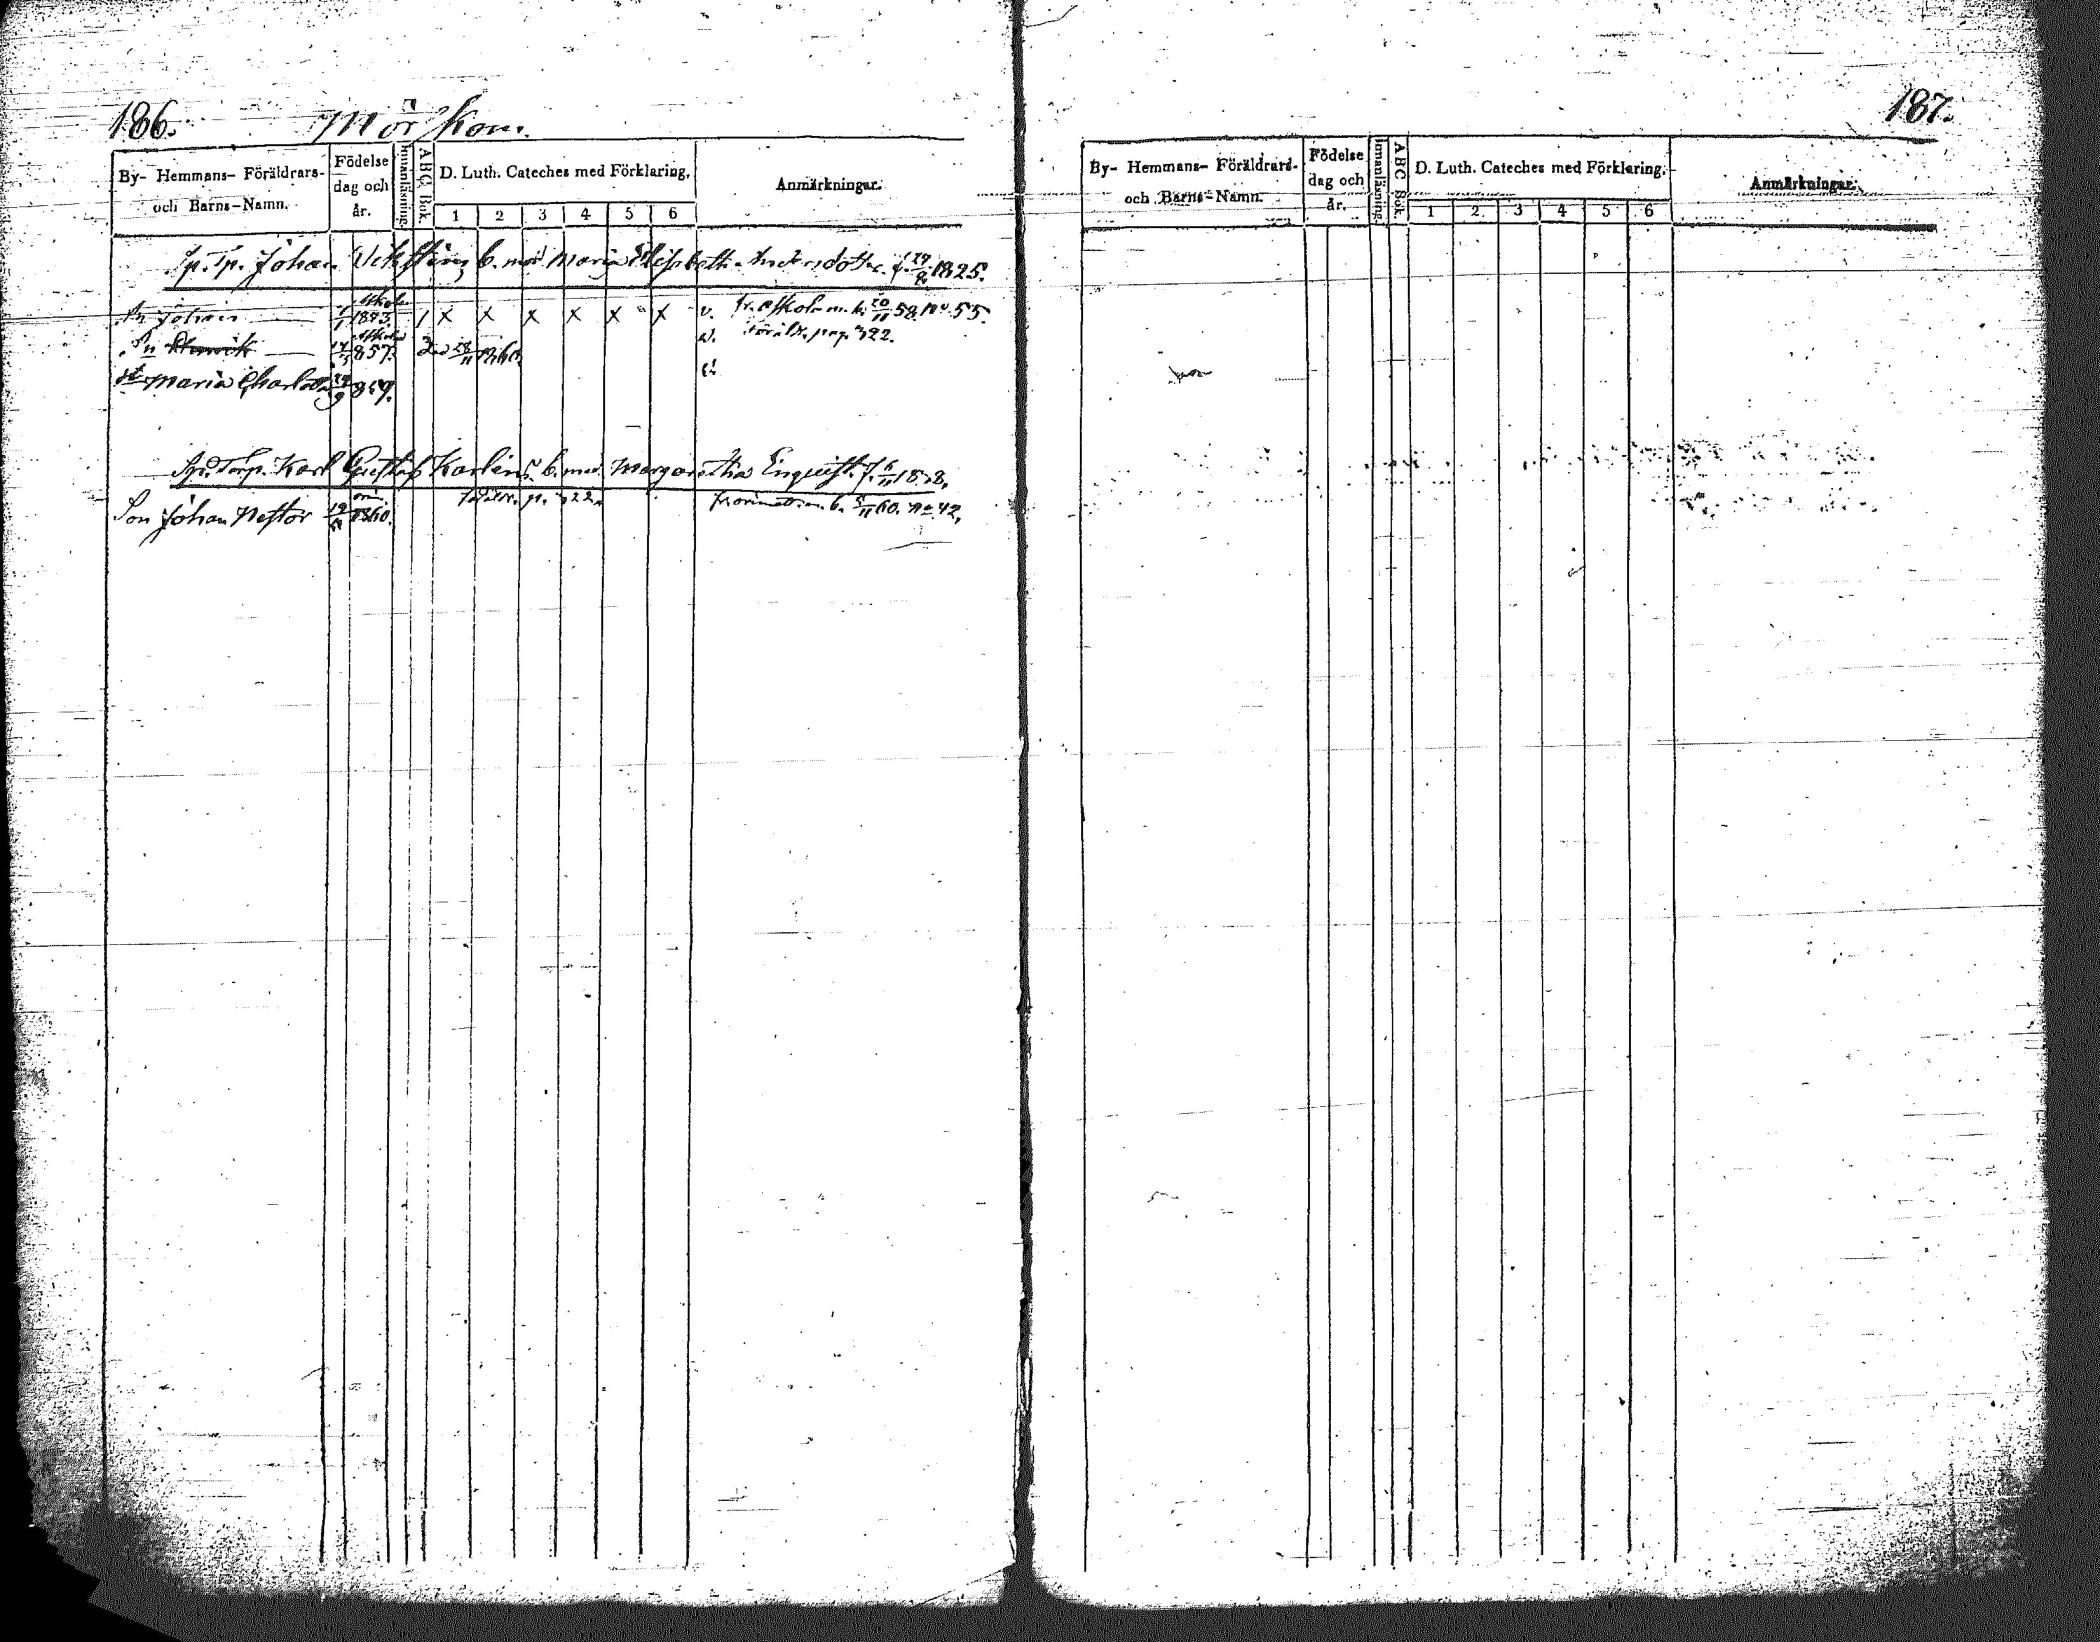 186.
Mörskom.
By- Hemmans- Föräldrars- och Barns-Namn.
Födelse dag och år.
Innanläsning.
ABC Bok.
D. Luth. Cateches med Förklaring.
1 2 3 4 5 6
Anmärkningar.
Sp. Tp. Johan b. med Maria Elisabeth Andersdotter f. 29/8 1825.
Sn Johan 1843. 1 x x x x x x v. fr. Askola m. b. 20/11 58. No 55.
Askola
Sn 857. 28/11 1860 v. föräldr. pag. 322.
Maria Charlotta 859.
Sp. Torp. Karl Gustaf Karlin b. med Margaretha Enqvist. f.
föräldr. p. 322.
Son Johan Nestor 1860. m. b. 5/11 60. No 42.
187.
By- Hemmans- Föräldrars- och Barns-Namn.
Födelse dag och år.
Innanläsning.
ABC Bok.
D. Luth. Cateches med Förklaring.
1 2 3 4 5 6
Anmärkningar.